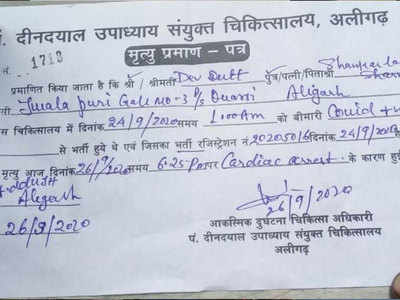 पं. दीनदयाल उपाध्याय संयुक्त चिकित्सालय, अलीगढ़
1713
मृत्यु प्रमाण – पत्र
प्रमाणित किया जाता है कि श्री / श्रीमती Dev Dutt पुत्र/पत्नी/पिताश्री Shankar lal
Jwala puri Gali No-3 P/S Quarsi Aligarh
स चिकित्सालय में दिनांक 24/9/2020 समय 1:00AM को बीमारी Covid +ve
से भर्ती हुये थे एवं जिसका भर्ती रजिस्ट्रेशन नं 202050/6 दिनांक 24/9/2020
मृत्यु आज दिनांक 26/9/2020 समय 6:25 Cardiac arrest के कारण हुई
Aligarh
26/9/2020
26/9/2020
आकस्मिक दुर्घटना चिकित्सा अधिकारी
पं. दीनदयाल उपाध्याय संयुक्त चिकित्सालय
अलीगढ़